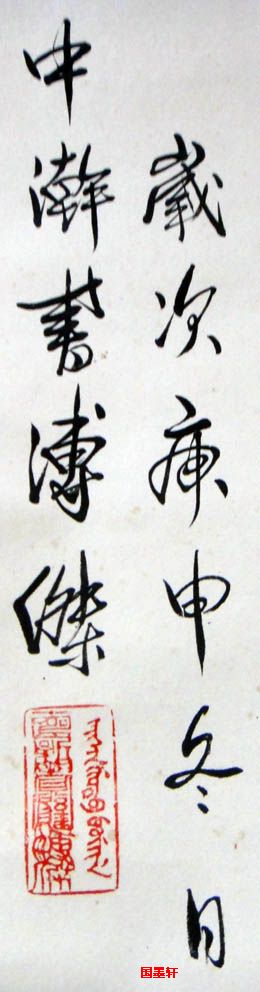 歲次庚申冬月
中澣書溥傑
国墨轩